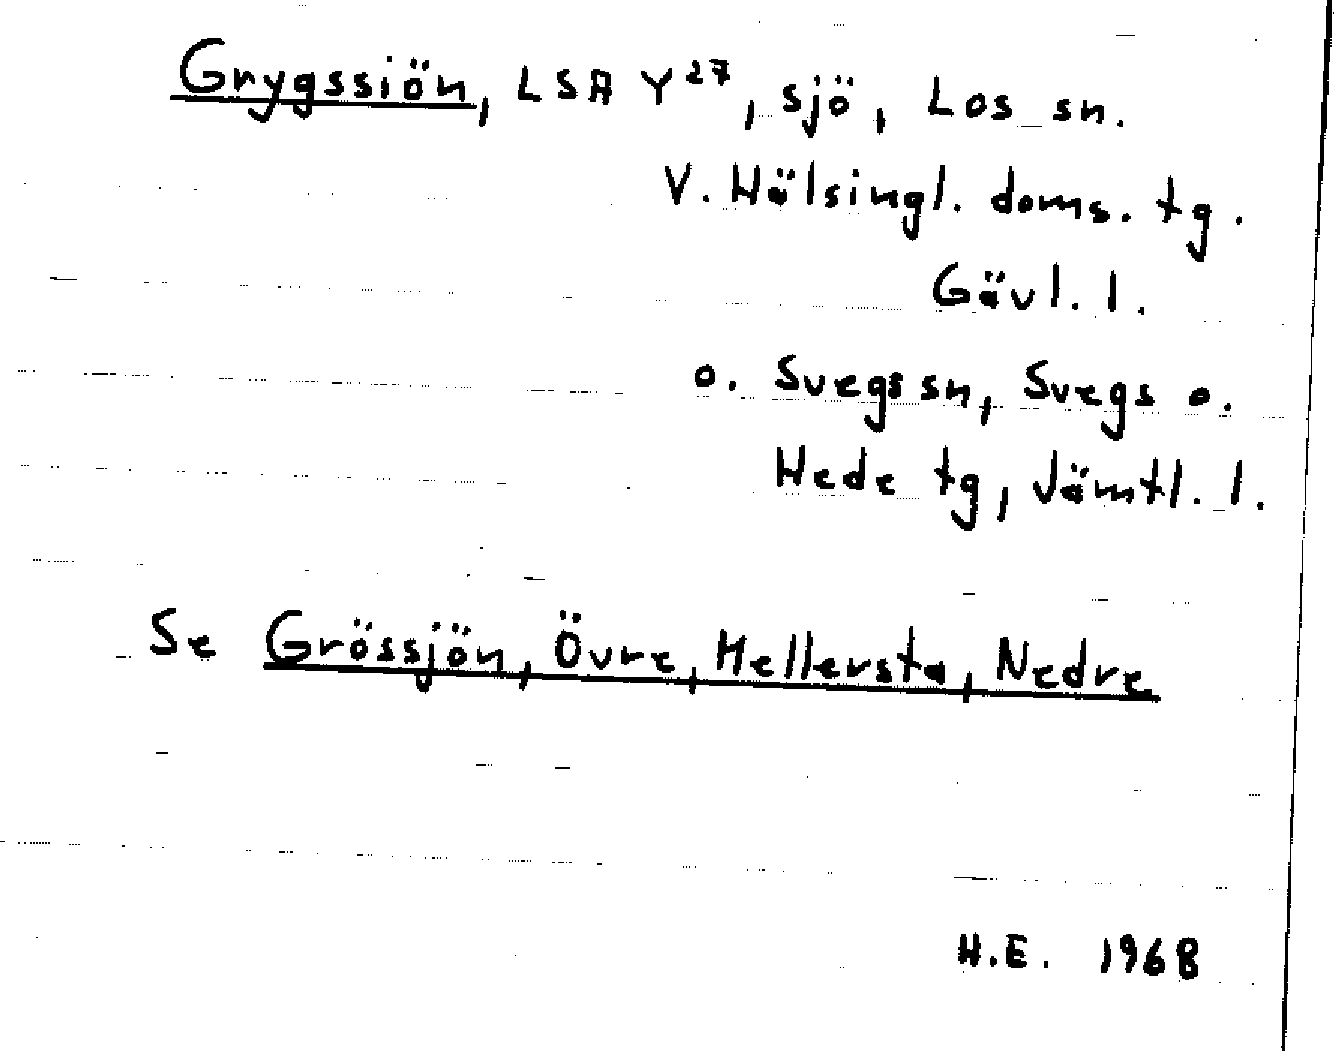 Grygssiön, LSA Y27, sjö, Los sn.
V. Hälsingl. doms. tg.
Gävl. l.
o. Svegs sn, Svegs o.
Hede tg, Jämtl. l.
Se Grössjön, Övre, Mellersta, Nedre
H.E. 1968